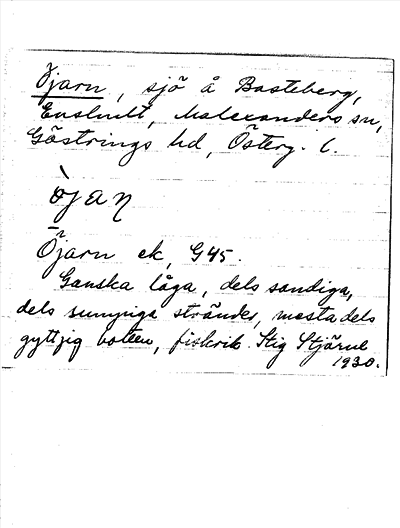 Öjarn, sjö å Basteberg,
Enslult, Malexanders sn,
Göstrings hd, Österg. l.
ò̈jaɳ
Öjarn ek, G45.
Ganska låga, dels sandiga,
dels sumpiga stränder, mestadels
gyttjig botten, fiskrik. Stig Stjärne
1930.